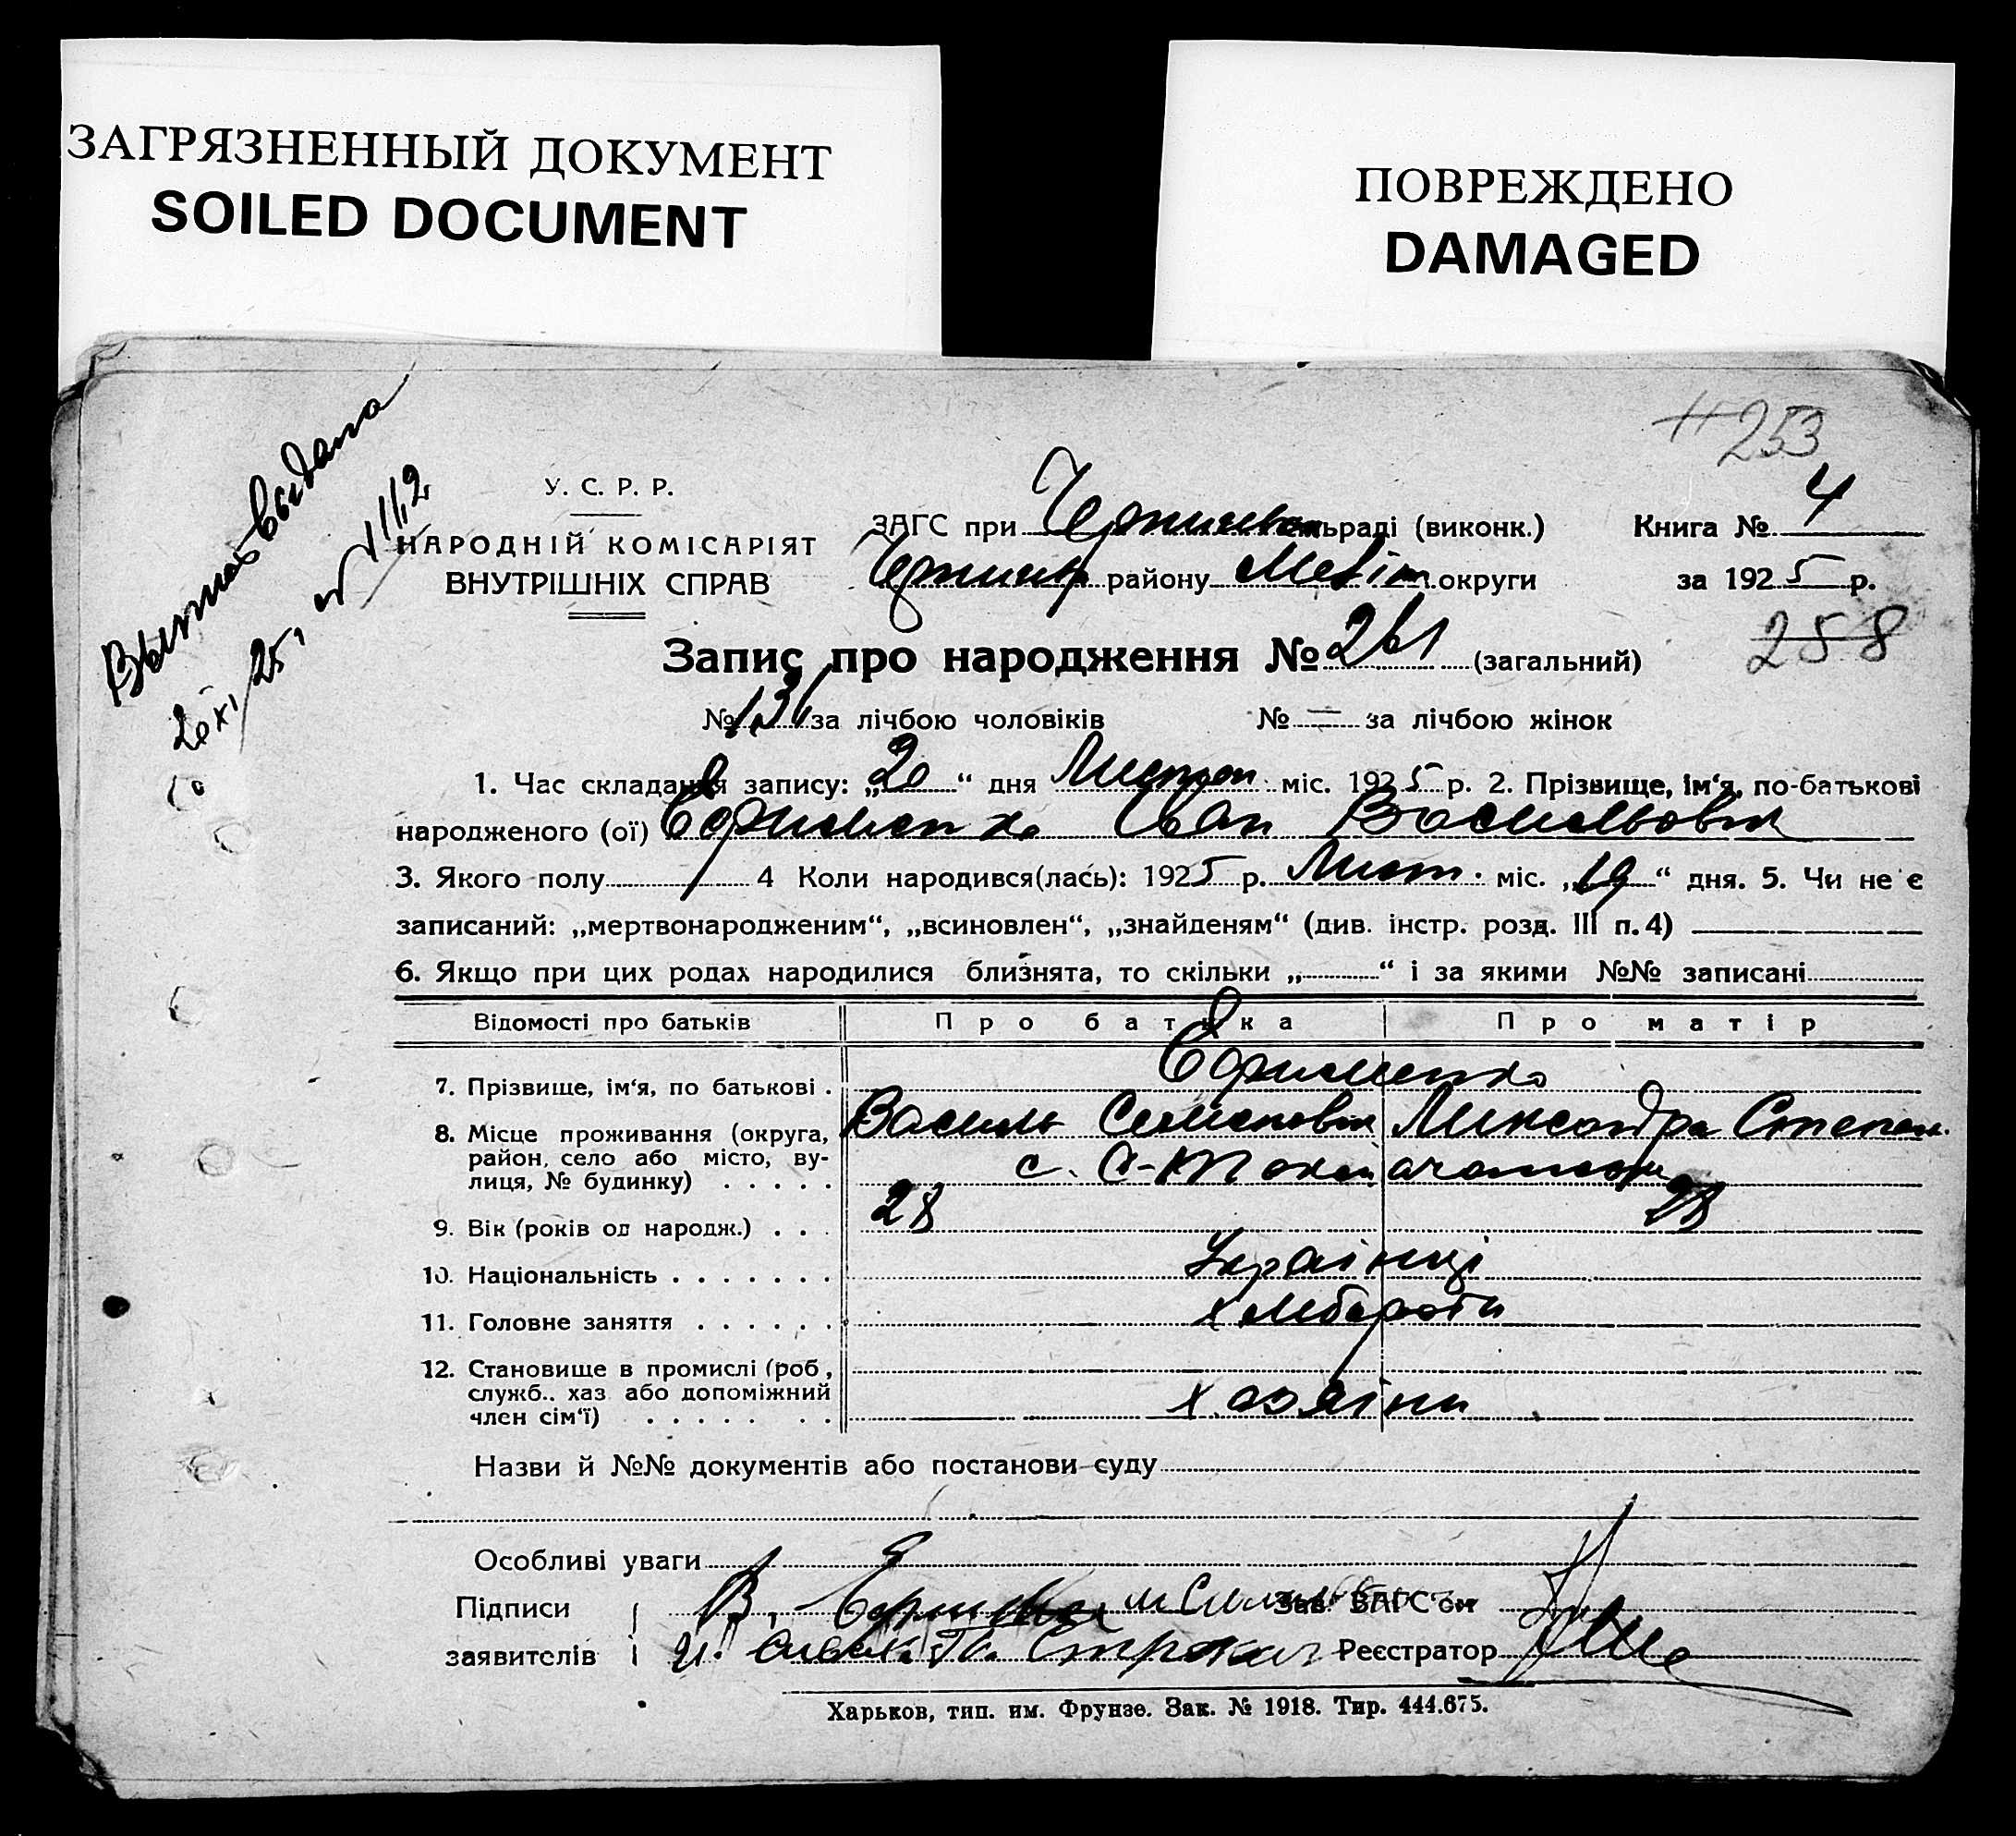 ЗАГРЯЗНЕННЫЙ ДОКУМЕНТ
SOILED DOCUMENT
ПОВРЕЖДЕНО
DAMAGED
253
Выписъ выдана
20/XI 25, №1112
У. С. Р. Р.
НАРОДНІЙ КОМІСАРІЯТ
ВНУТРІШНІХ СПРАВ
ЗАГС при сельраді (виконк.) Книга № 4
району Меліт округи за 1925 р.
Запис про народження № 261 (загальний) 258
№ 136 за лічбою чоловіків № — за лічбою жінок
1. Час складання запису: „20“ дня Листоп міс. 1925 р. 2. Прізвище, ім‘я, по-батькові
народженого (ої) Ефименко Іван Васильович
3. Якого полу 4 Коли народився(лась): 1925 р. Лист. міс. „19“ дня. 5. Чи не є
записаний: „мертвонародженим“, „всиновлен“, „знайденям“ (див. інстр. розд. III п. 4)
6. Якщо при цих родах народилися близнята, то скільки „ “ і за якими №№ записані
Відомості про батьків Про батька Про матір
7. Прізвище, ім‘я, по батькові . Ефименко
8. Місце проживання (округа, Василь Семенович Лександра Степан.
район, село або місто, ву-
лиця, № будинку) . . . . . с.
9. Вік (років од народж.) . . . 28 28
10. Національність . . . . . . . Українці
11. Головне заняття . . . . . . хлібороби
12. Становище в промислі (роб,
служб.. хаз або допоміжний хазяіни
член сім‘ї) . . . . . . .
Назви й №№ документів або постанови суду
Особливі уваги
Підписи В. Зав. ЗАГС‘ом
заявителів Реєстратор
Харьков, тип. им. Фрунзе. Зак. № 1918. Тир. 444.675.